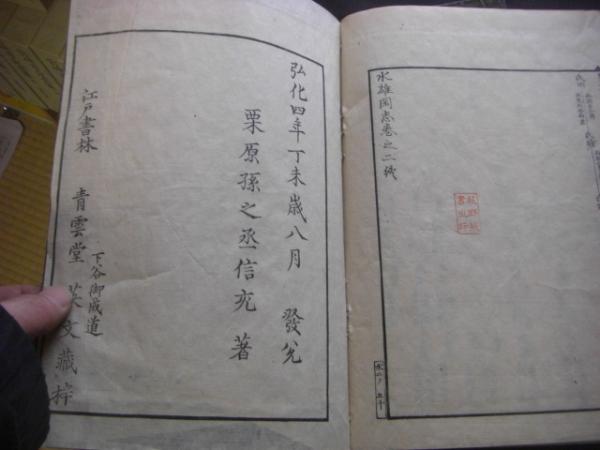 水雄岡志巻之二終
弘化四年丁未歳八月 發兌
栗原孫之丞信充 著
江戸書林
下谷御成道
青雲堂 英文藏梓